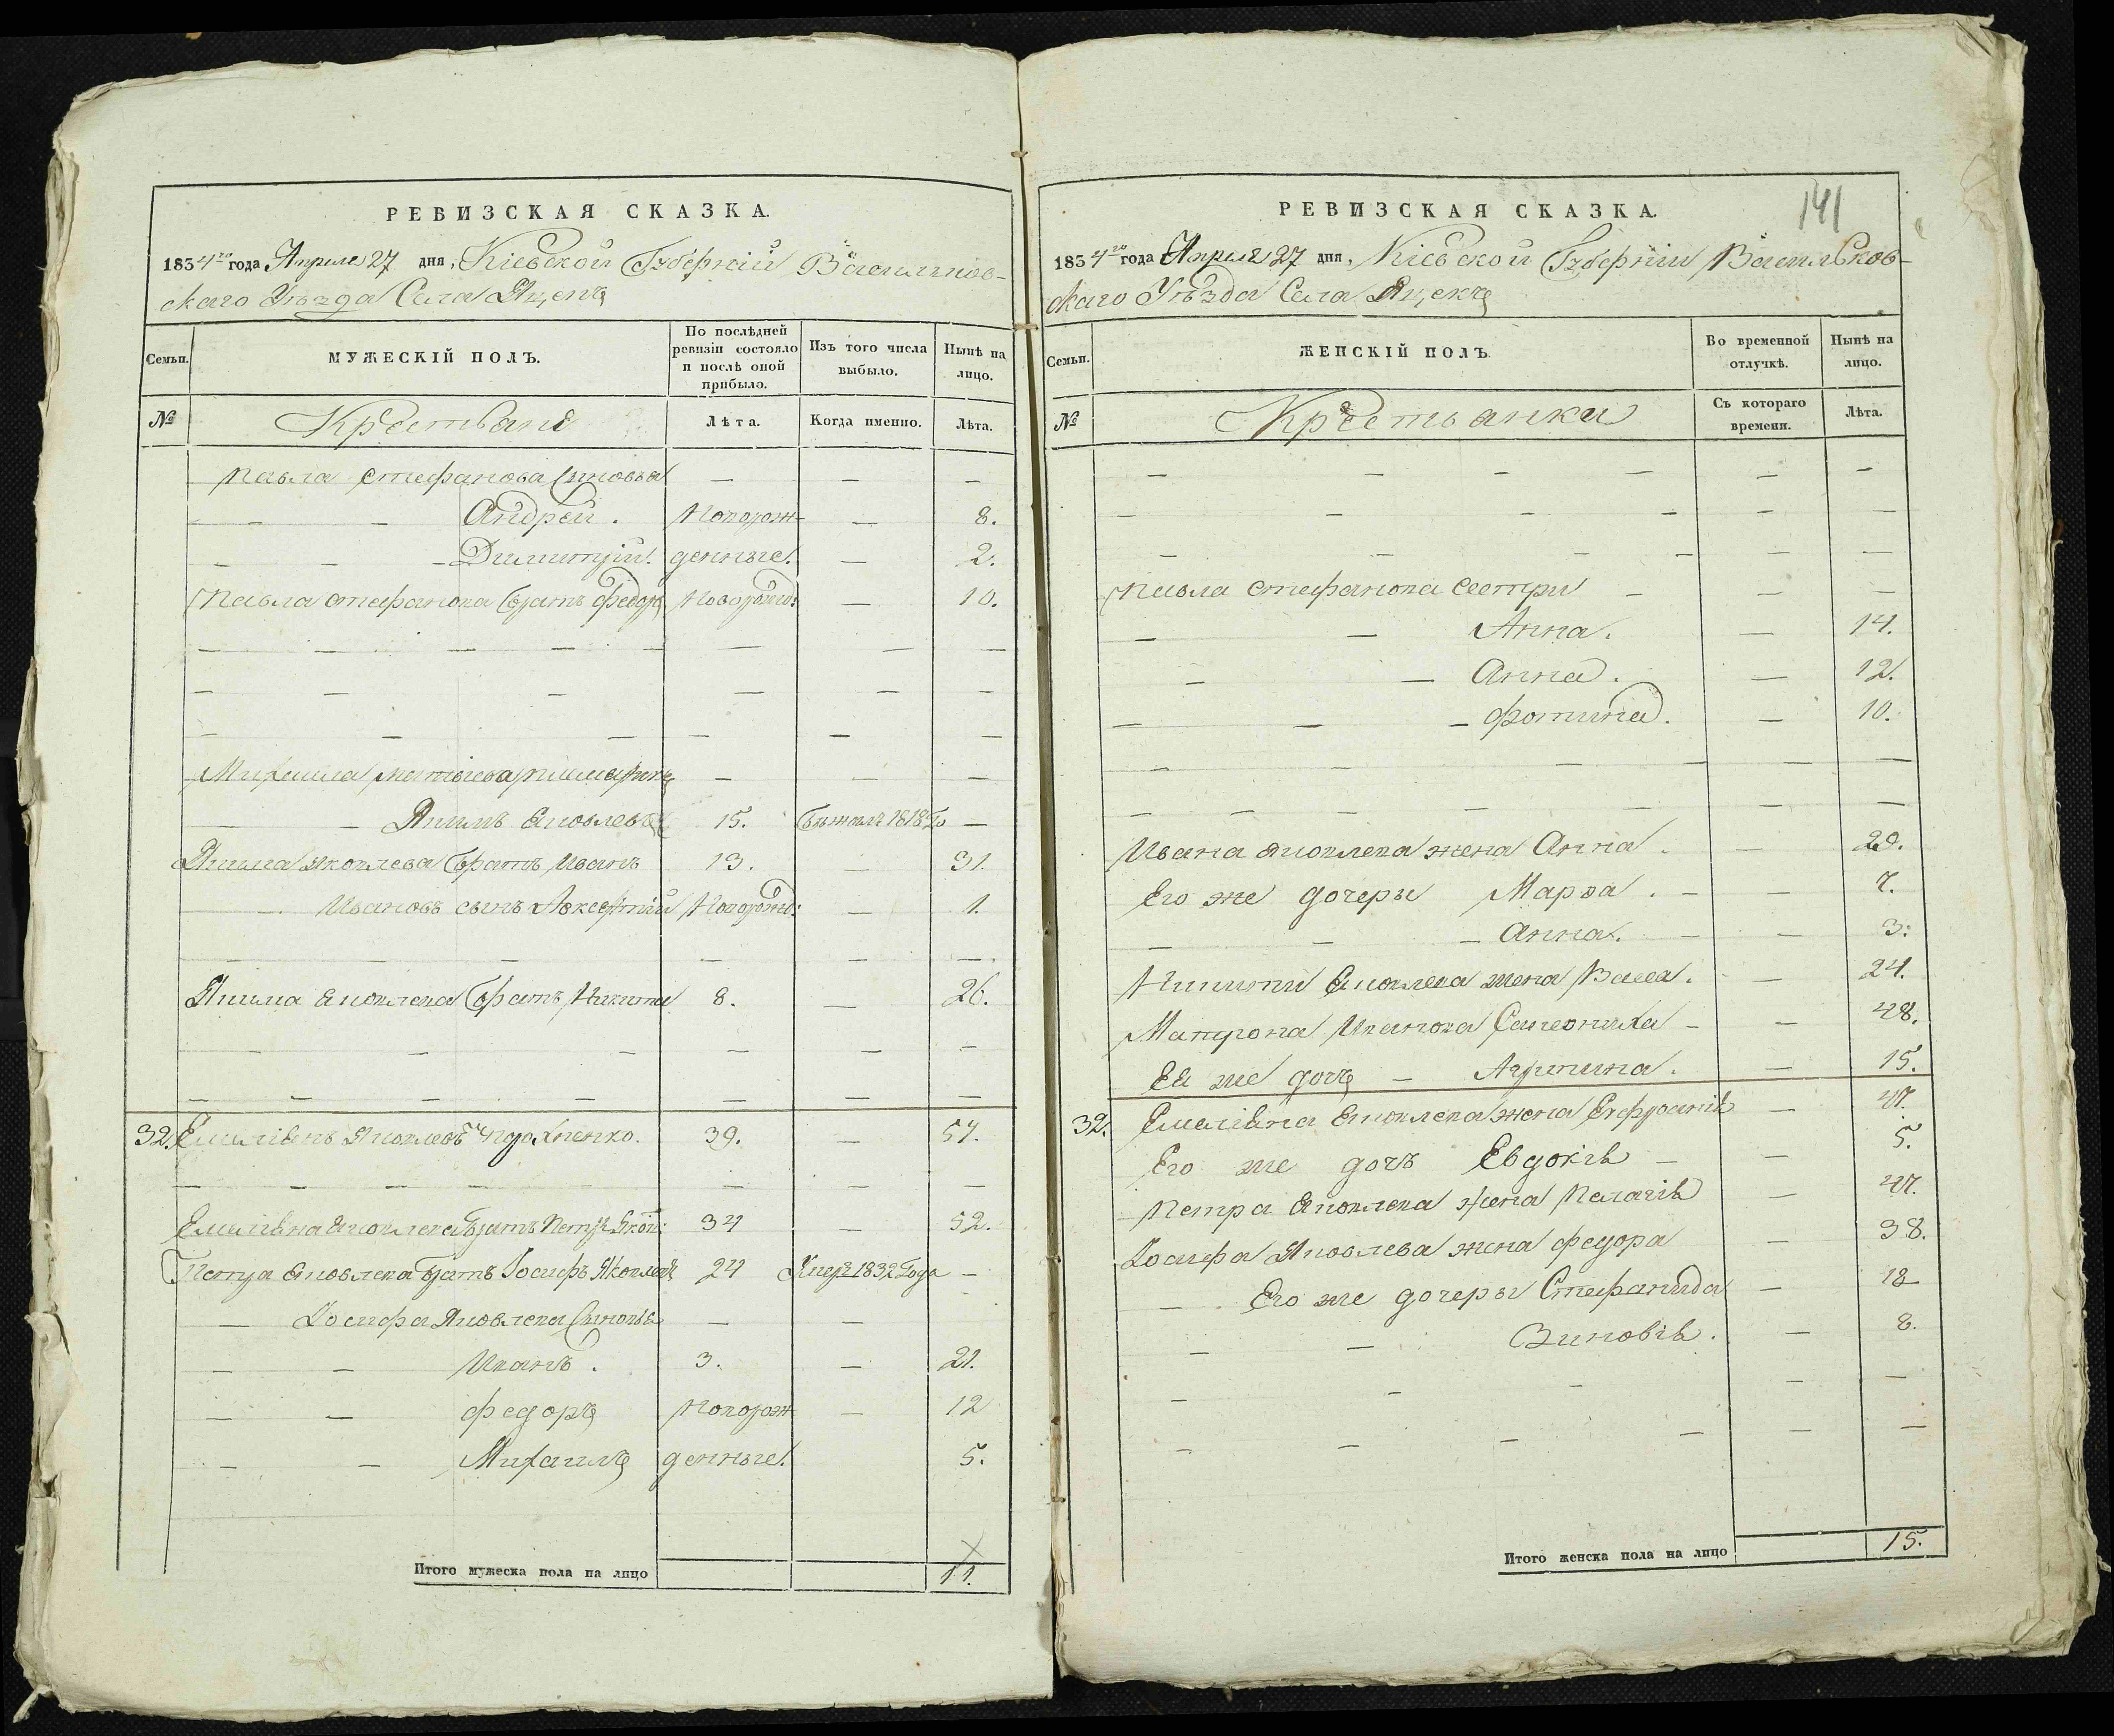 РЕВИЗСКАЯ СКАЗКА.
1834го года Апреля 27 дня, Кіевской Губерніи Васильков-
скаго Уѣзда Села Яцекъ
Семьи.
МУЖЕСКІЙ ПОЛЪ.
По послѣдней ревизіи состояло и послѣ оной прибыло.
Изъ того числа выбыло.
Нынѣ на лицо.
№
Крестьяне
Лѣта.
Когда именно.
Лѣта.
Павла Стефанова Сыновья — — —
— — Андрей. Новорож- — 8.
— — Димитрій. денные. — 2.
Павла Стефанова Братъ Федоръ Новорожд: — 10.
Михаила
— — Якимъ Яковлевъ 15. Бѣжалъ 1818 Го —
Якима Яковлева Братъ Иванъ 13. — 31.
— Ивановъ сынъ Авксентій Новорожд: — 1.
Якима Яковлева Братъ Никита 8. — 26.
32. Емеліянъ Яковлевъ 39. — 57.
Емеліяна Яковлева Братъ Петръ Яков: 34 — 52.
Петра Яковлева Братъ Іосифъ Яковлевъ 24 Умеръ 1832 Года —
— Іосифа Яковлева Сыновья — —
— — Иванъ. 3. — 21.
— — Федоръ Новорож- — 12
— — Михаилъ денные. 5.
Итого мужеска пола на лицо 11.
141
РЕВИЗСКАЯ СКАЗКА.
1834го года Апреля 27 дня, Кіевской Губерніи Васильков-
скаго Уѣзда Села Яцекъ
Семьи.
ЖЕНСКІЙ ПОЛЪ.
Во временной отлучкѣ.
Нынѣ на лицо.
№
Крестьянки
Съ котораго времени.
Лѣта.
Павла Стефанова Сестры — — —
— — Анна. — 14.
— — Анна. — 12.
— — Фотина. — 10.
Ивана Яковлева жена Анна. — 20.
Его же дочеры Марфа. — — 7.
— — Анна. — — 3.
Никиты Яковлева жена Васса. — 24.
Матрона Иванова — — 48.
Ея же дочъ — Агрипина. — 15.
32. Емеліяна Яковлева жена Евфросинія — 47.
Его же дочъ Евдокія — — 5.
Петра Яковлева жена Пелагія — 47.
Іосифа Яковлева жена Федора — 38.
— Его же дочеры Стефанида — 18
— — Зиновія. — 8.
Итого женска пола на лицо 15.